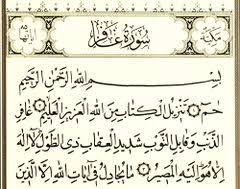 مكية سُورَةُ غَافِر ٨٥ آياتها
بِسْمِ اللهِ الرَّحْمٰنِ الرَّحِيمِ
حمٓ ۝ تَنْزِيلُ الْكِتَابِ مِنَ اللهِ الْعَزِيزِ الْعَلِيمِ ۝ غَافِرِ
الذَّنْبِ وَقَابِلِ التَّوْبِ شَدِيدِ الْعِقَابِ ذِي الطَّوْلِ لَا إِلٰهَ
إِلَّا هُوَ إِلَيْهِ الْمَصِيرُ ۝ مَا يُجَادِلُ فِي آيَاتِ اللهِ إِلَّا الَّذِينَ